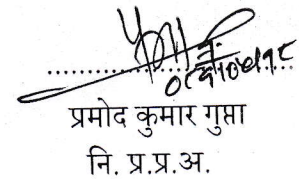 प्रमोद कुमार गुप्ता
नि. प्र.प्र.अ.